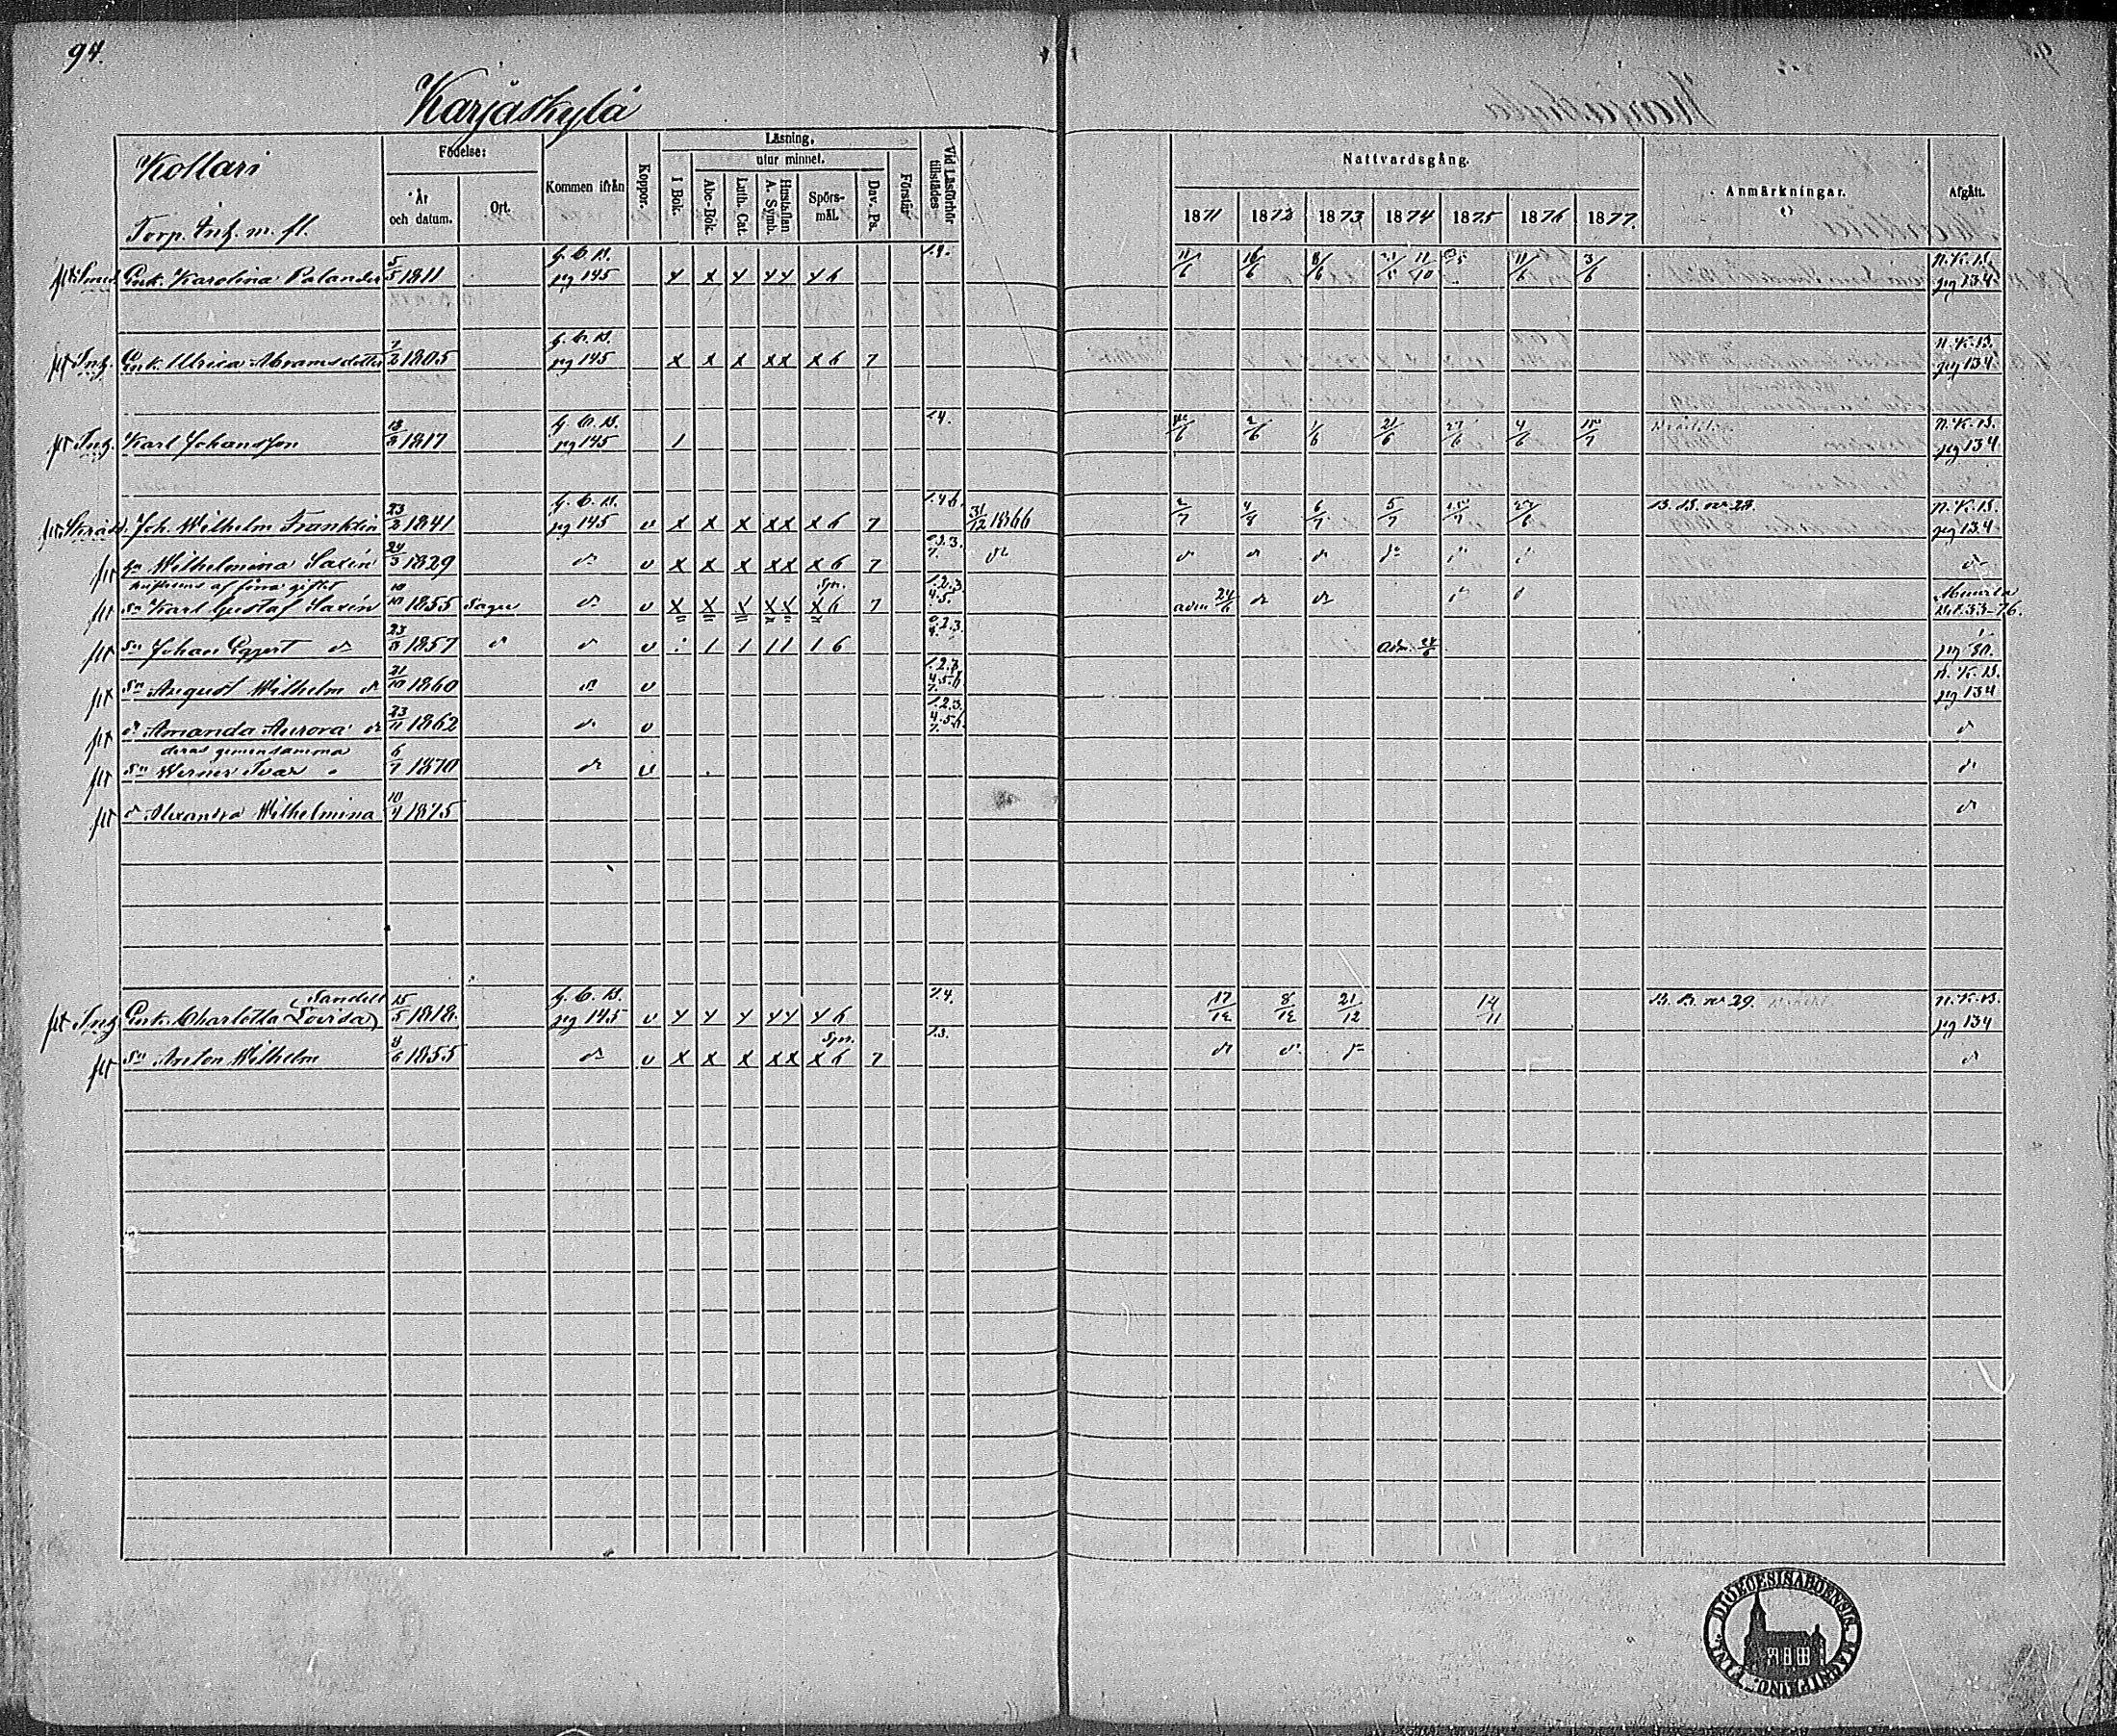 94.
Karjaskylä
Kollari
Torp. Inh. m. fl.
Födelse:
År och datum.
Ort.
Kommen ifrån
Koppor.
Läsning,
I Bok.
utur minnet.
Abc-Bok.
Luth. Cat.
Hustaflan A. Symb.
Spörs-mål.
Dav. Ps.
Förstår
Vid Läsförhör tillstädes
Nattvardsgång.
1871 1872 1873 1874 1875 1876 1877.
Anmärkningar.
Afgått.
Enk. Karolina Palander 5/5 1811 G. C. B. pag 145 11/6 16/6 8/6 11/6 3/6 N. K. B. pag 134
Inh. Enk. Ulrica Abramsdotter 7/2 1805 G. C. B. pag 145 x x x xx x 6 7 N. K. B. pag 134
Inh. Karl Johansson 13/3 1817 G. C. B. pag 145 1 1.4. 2/6 1/6 21/6 27/6 4/6 N. K. B. pag 134
Joh. Wilhelm Franklin 23/2 1841 G. C. B. pag 145 v x x x xx x 6 7 1.4.6. 31/12 1866 2/7 4/8 6/7 5/7 27/6 B. B. no 28 N. K. B. pag 134
hu Wilhelmina Saxén 24/3 1829 do v x x x xx x 6 7 do do do do do
hustruns af förra giftet
Sn Karl Gustaf Saxén 1855 Sagu do v x x x xx x 6 7 1.2.3. 4.5. adm 24/6 do do 33-76.
Sn Johan Eggert do 23/3 1857 do do v 1 1 11 1 6 adm. 24/6 pag 80.
Sn August Wilhelm do 21/10 1860 do v 1.2.3. 4.5.6. 7. N. K. B. pag 134
dr Amanda Aurora do 23/11 1862 do v 1.2.3. 4.5.6. 7. do
deras gemensamma
Sn Werner Ivar 6/7 1870 do v do
dr Alexandra Wilhelmina 10/4 1875 do
Inh Enk. Charlotta Lovisa Sandell 15/5 1818 G. C. B. pag 145 v 1.4. 17/12 8/12 21/12 14/11 B. B. no 29. N. K. B. pag 134
Sn Anton Wilhelm 8/6 1855 do v x x x xx x 6 7 1.3. do do do do
DIOECESIS ABOENSIS. MAGNI PRINC. FINL.